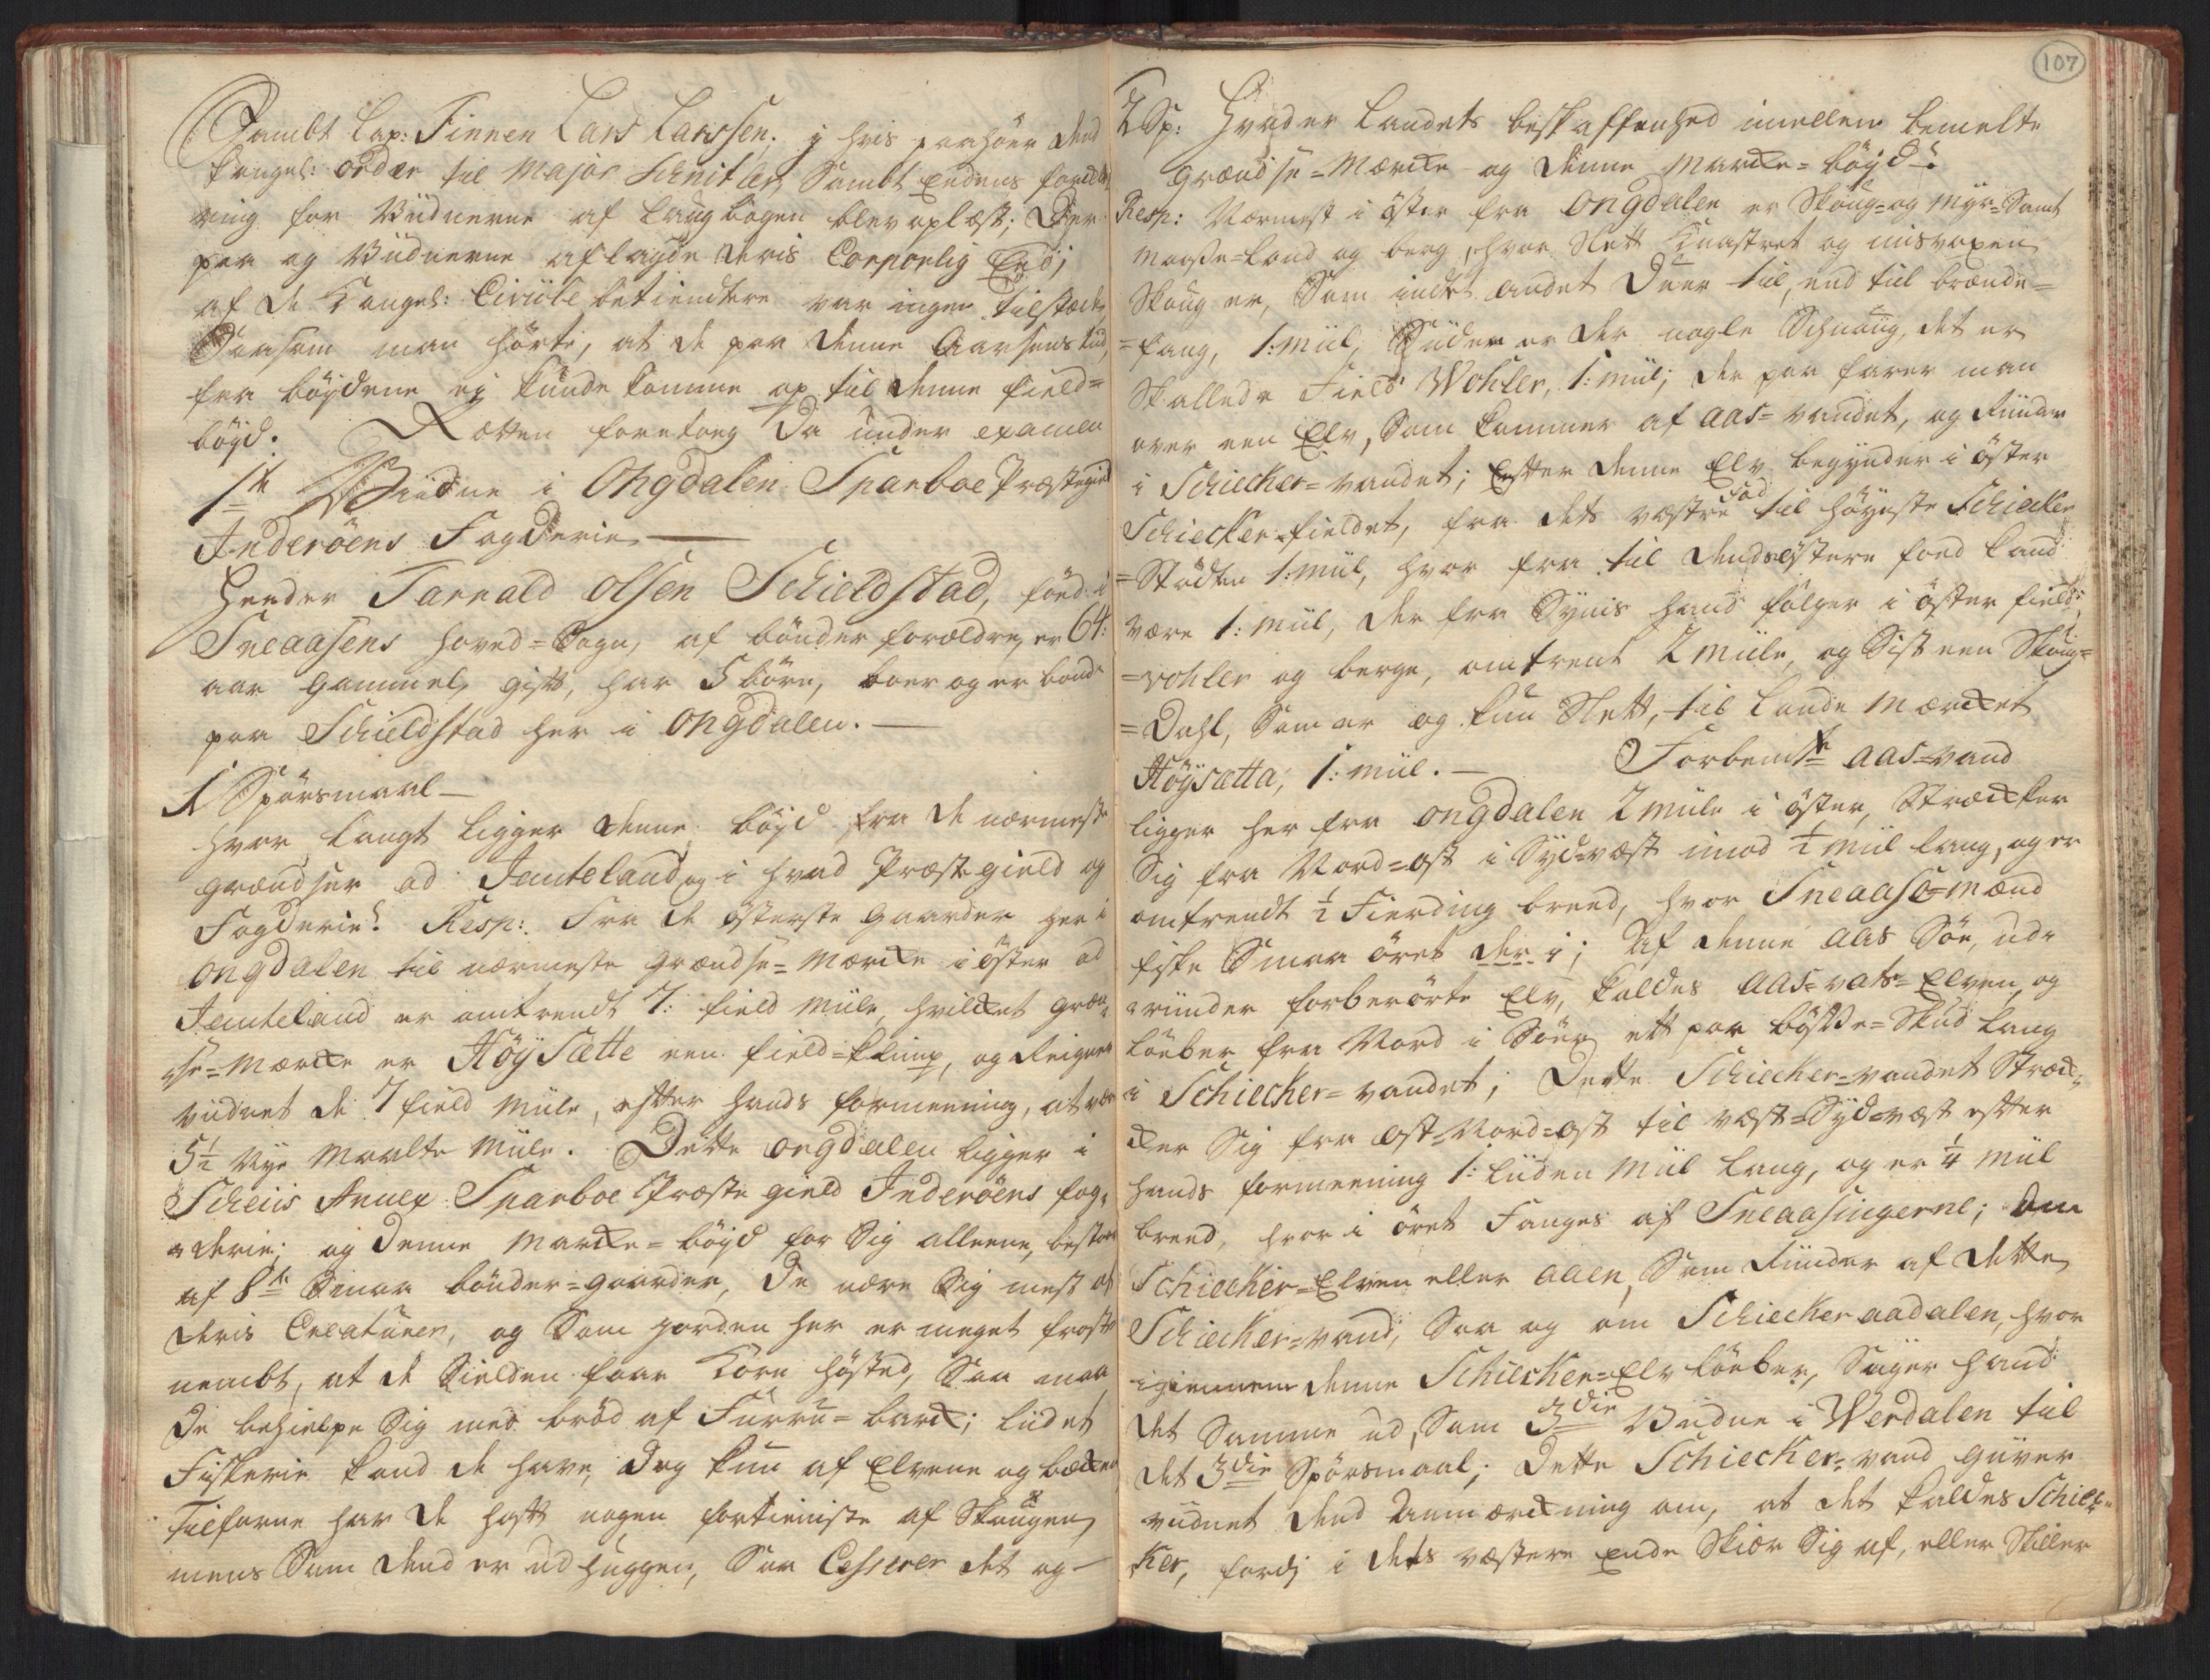 Sambt Lap: Finnen Lars Larssen; i hvis paahöer dend
Kongel: order til Major Schnitler, Sambt Eedens forkla
ring for Viidnerne af Laugbogen blev oplæst; Der
paa og Viidnerne aflagde deris Corporlig Eed;
af de Kongel: Civiile betiendtere var ingen tilstæde
Saasom man hörte, at de paa denne Aarsens tiid,
fra böjderne ej kunde komme op til denne field=
böjd. Rætten foretoeg da under examen
1te Viidne i Ongdalen Sparboe Præstegield
Inderöens Fogderie
Heeder Tarrald Olsen Schieldstad, föed i
Sneaasens hoved=Sogn, af bönder forældre, er 64:
aar gammel, gift, har 5 börn, boer og er bonde
paa Schieldstad her i Ongdalen.
1 Spörsmaal
Hvor langt ligger denne böjd fra de nærmeste
grændser ad Jemteland, og i hvad Præstegield og
Fogderie? Resp: Fra de österste gaarder her i
Ongdalen til nærmeste grændse=Mærcke i öster ad
Jemteland er omtrendt 7: field Miile, hvilcket græn=
se=Mærcke er HöySætte een field=klimp, og Reigner
viidnet de 7 field Miile, efter hands formeening, at være
5½ Nye Maalte Miile. Dette Ongdalen ligger i
Scheiis Annex Sparboe Præstegield Inderöens fog=
=derie; og denne Marcke=böjd for Sig alleene, bestaar
af 8te Smaa bönder=gaarder, De nære Sig mest af
deris Creaturer, og Som jorden her er meget frost
nembt, at de Sielden faar Korn högsted, Saa maa
De behielpe Sig med bröd af Furru=barck; liidet
Fiskerie kand de have, dog kun af Elvene og bæcker
Tilforne har de haft nogen fortieniste af Skougen,
mens Som dend er udhuggen, Saa Cesserer det og
107
2 Sp: Hvad er Landets beskaffenhed imellem bemelte
Grændse=Mærcke og denne Marcke=böyd?
Resp: Nærmest i öster fra Ongdalen er Skoug=og Myr=Samt
Moesse=Land og berg, hvor slett Knastret og misvoxen
Skoug er, Som indtet andet duer til, end til brænde=
=fang, 1: Miil; Siiden er der nogle Schnaug, det er
Skallede Field Wohler, 1: Miil; der paa farer man
over een Elv, Som kommer af Aas=vandet, og Riinder
i Schiecker=vandet; Efter denne Elv begynder i öster
Schiecker=fieldet, fra dets væstre food til höyeste Schiecker
=Stödten 1: Miil, hvor fra til dends östere foed kand
være 1: Miil, der fra Synis hand fölger i öster field
=vohler og berge, omtrent 2 Miile, og Sist een Skoug=
=Dahl, Som er og kun Slett, til Lande Mærcket
Höysætta, 1: Miil. Forbemte Aas=vand
ligger her fra Ongdalen 2 Miile i öster, Strecker
Sig fra Nord=ost i Syd=væst imod ½ Miil lang, og er
omtrendt ½ Fierding breed, hvor Sneaase=mænd
fiske Smaa öret der i; Af denne Aas Söe, ud=
=riinder forberörte Elv, kaldes Aas=vats=Elven, og
löeber fra Nord i Söer ett par bösse=Skud lang
i Schiecker=vandet; Dette Schiecker=vandet Stræc=
ker Sig fra ost=Nord=ost til væst=Syd=væst efter
hands formeening 1: liiden Miil lang, og er ¼ Miil
breed, hvor i öret Fanges af Sneaasingerne; Om
Schiecker=Elven eller Aaen, Som Riinder af dette
Schiecker=vand, Saa og om Schiecker aadalen, hvor
igiennem denne Schiecker=Elv löeber, Siiger hand
det Samme ud, Som 3die Viidne i Werdalen til
det 3die Spörsmaal; Dette Schiecker=vand giiver
viidnet dend anmærckning om, at det kaldes Schiec=
ker, fordj i dets væstere Ende Skiær Sig af, eller Skiller